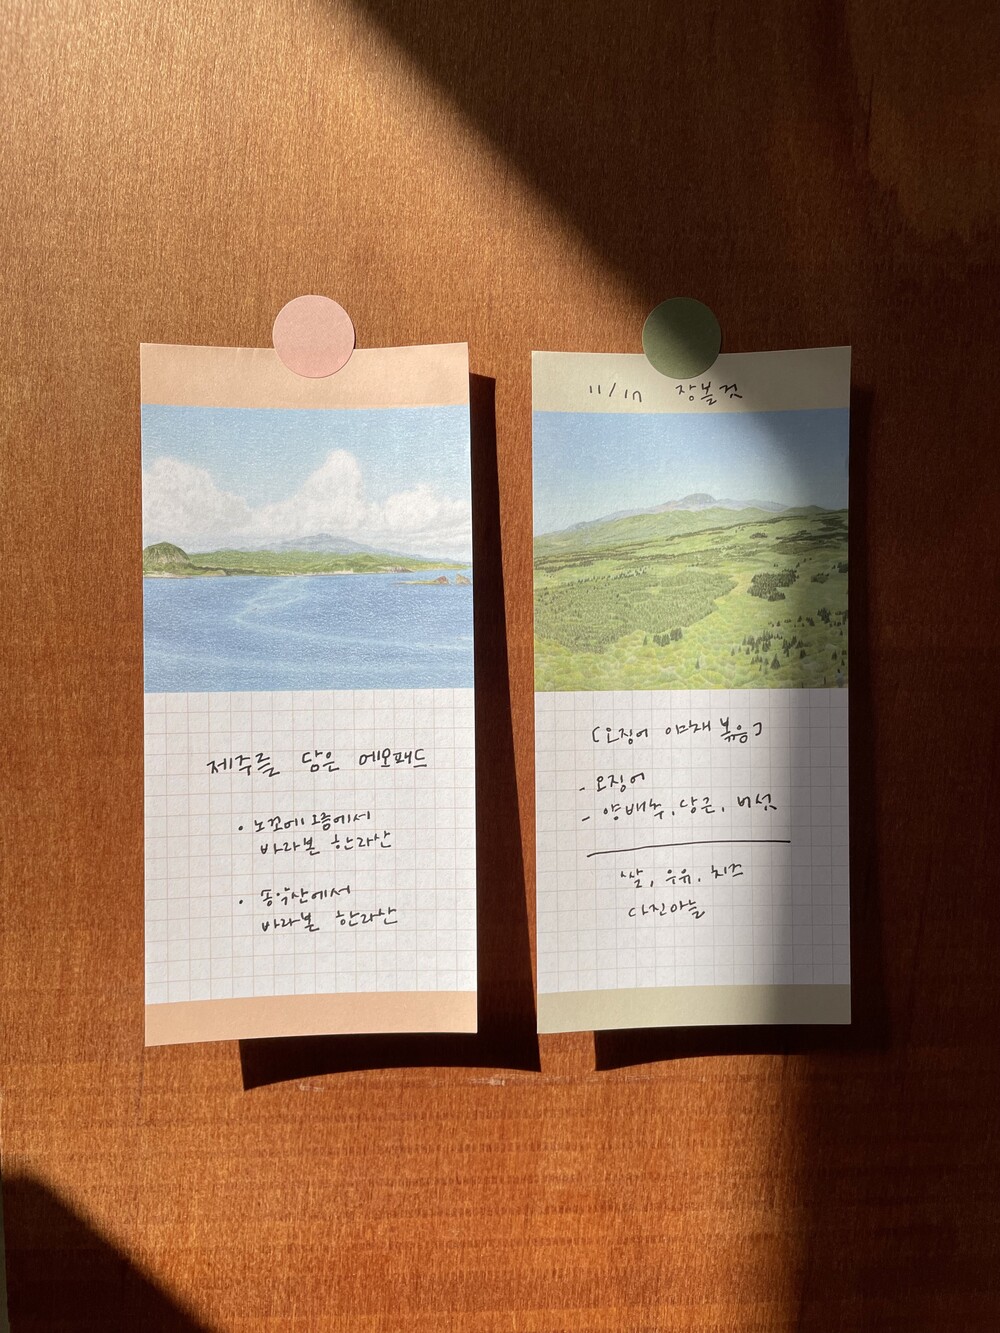 제주를 담은 메모패드
· 노꼬메오름에서
바라본 한라산
· 송악산에서
바라본 한라산
11/17 장볼것
[오징어 야채볶음]
- 오징어
- 양배추, 당근, 버섯
쌀, 우유, 치즈
다진마늘